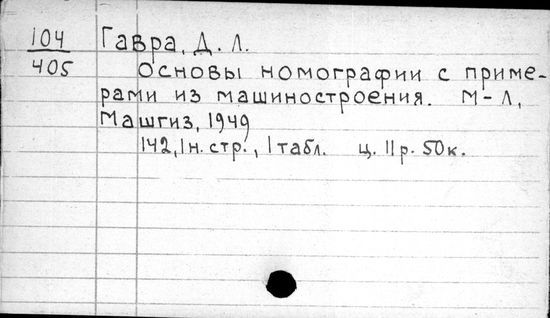 104
405
Гавра, Д. Л.
Основы номографии с приме-
рами из машиностроения. М-Л,
Машгиз, 1949
142, 1 н. стр., 1 табл. ц. 11 р. 50 к.